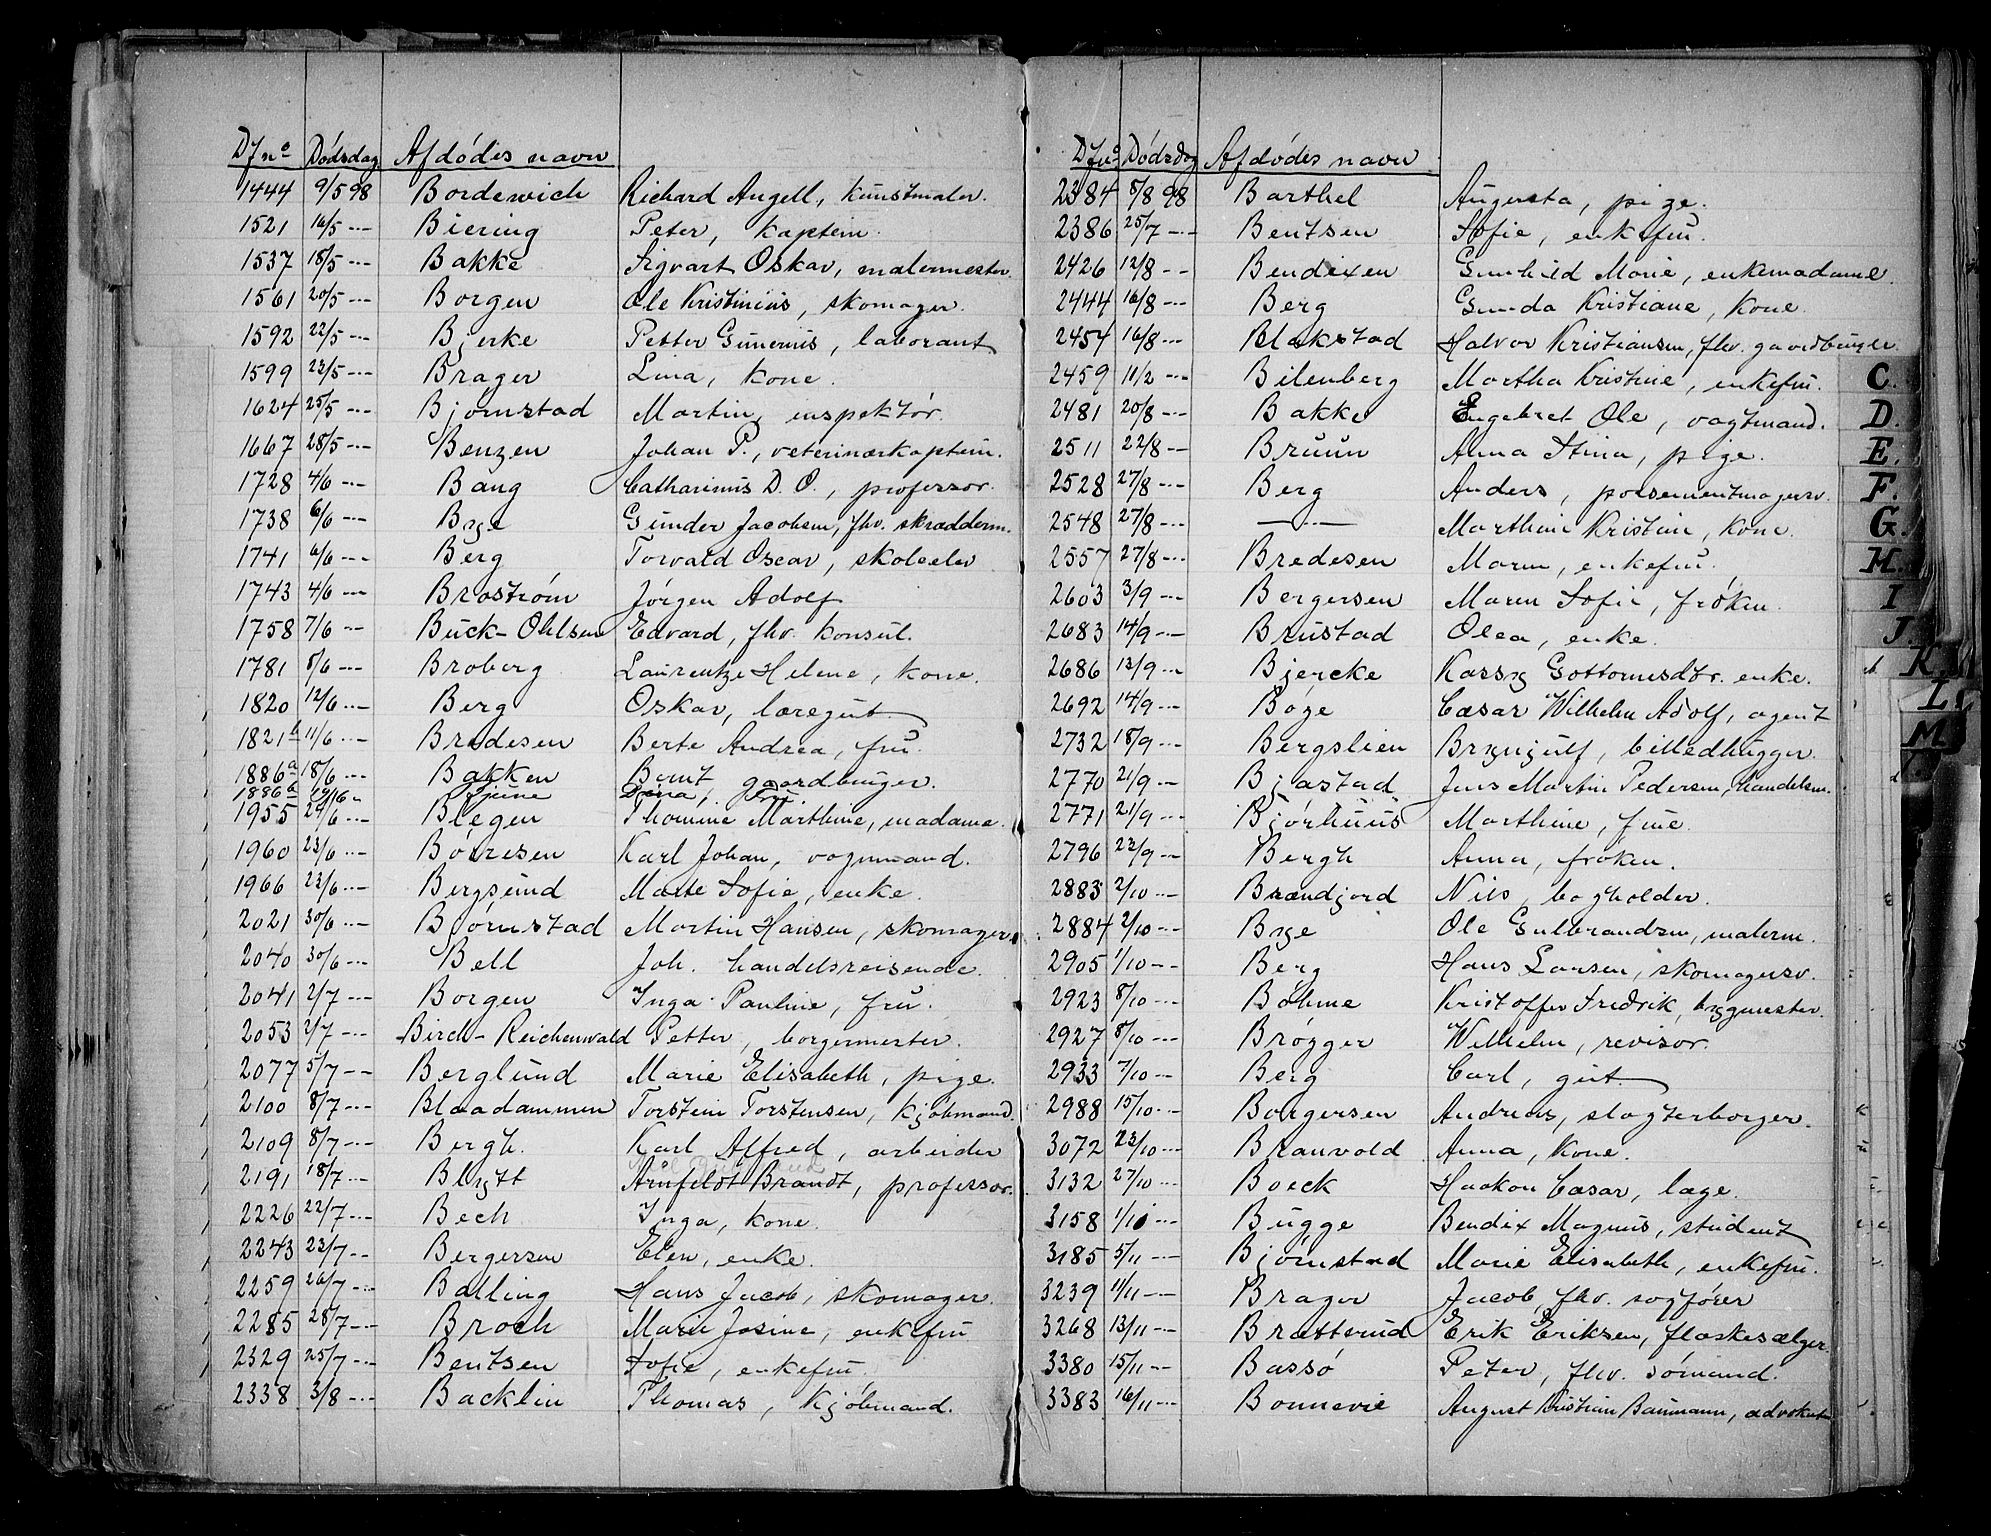 Df nº Dödsdag Afdödes navn
1444 9/5 98 Bordewich Richard Angell, kunstmaler.
1521 16/5 -- Biering Peter, kaptein.
1537 18/5 -- Bakke Sigvart Oskar, malermester.
1561 20/5 -- Borgen Ole Kristinius, skomager.
1592 22/5 -- Bjerke Petter Gunerius, laborant
1599 23/5 -- Brager Lina, kone.
1624 25/5 -- Bjørnstad Martin, inspektør.
1667 28/5 -- Benzen Johan P., veterinærkaptein.
1728 4/6 -- Bang Catharinus D. O., professor.
1738 6/6 -- Bye Gunder Jacobsen, fhv. skrædderm.
1741 6/6 -- Berg Torvald Oscar, skoleelev
1743 4/6 -- Brostrøm Jørgen Adolf
1758 7/6 -- Buck-Ohlsen Edvard, fhv. konsul.
1781 8/6 -- Broberg Laurentze Helene, kone.
1820 12/6 -- Berg Oskar, læregut.
1821 b 11/6 -- Bredesen Berte Andrea, fru.
1886 a 18/6 -- Bakken Bernt gaardbruger.
1886 b 19/6 -- Dina, fru
1955 24/6 -- Blegen Thomine Marthine, madame.
1960 23/6 -- Børresen Karl Johan, vognmand.
1966 23/6 -- Bergsund Marte Sofie, enke.
2021 30/6 -- Bjørnstad Martin Hansen, skomager.
2040 30/6 -- Bell Joh. handelsreisende.
2041 2/7 -- Borgen Inga Pauline, fru.
2053 2/7 -- Birch-Reichenwald Petter, borgermester.
2077 5/7 -- Berglund Marie Elisabeth, pige.
2100 8/7 -- Blaadammen Torstein Torstensen, kjøbmand.
2109 8/7 -- Bergh. Karl Alfred, arbeider
2191 18/7 -- Blytt Arnfeldt Brandt, professor.
2226 22/7 -- Bech Inga, kone.
2243 23/7 -- Bergersen Elen, enke.
2259 26/7 -- Balling Hans Jacob, skomager.
2285 28/7 -- Broch Marie Josine, enkefru
2329 25/7 -- Bentsen Sofie, enkefru.
2338 3/8 -- Backlin Thomas, kjøbmand.
Dfnº Dödsdag Afdödes navn
2384 8/8 98 Barthel Augusta, pige.
2386 25/7 -- Bentsen Sofie, enkefru.
2426 12/8 -- Bendixen Gunhild Marie, enkemadame.
2444 16/8 -- Berg Gunda Kristiane, kone.
2457 16/8 -- Blakstad Halvor Kristiansen, fhv. gaardbruger.
2459 11/2 -- Bilenberg Martha Kristine, enkefru.
2481 20/8 -- Bakke Engebret Ole, vagtmand.
2511 22/8 -- Bruun Anna Stina, pige.
2528 27/8 -- Berg Anders, possementmagersv.
2548 27/8 -- — Marthine Kristine, kone.
2557 27/8 -- Bredesen Maren, enkefru.
2603 3/9 -- Bergersen Maren Sofie, frøken.
2683 14/9 -- Brustad Olea, enke.
2686 12/9 -- Bjercke Karsy Gottormsdtr. enke.
2692 14/9 -- Bøge Cæsar Wilhelm Adolf, agent
2732 18/9 -- Bergslien Brynjulf, billedhugger.
2770 21/9 -- Bjastad Jens Martin Pedersen, handelsm.
2771 21/9 -- Bjørhuus Marthine, frue.
2796 22/9 -- Bergh Anna, frøken.
2883 2/10 -- Brændjord Nils, bogholder.
2884 2/10 -- Bye Ole Gulbrandsen, malerm.
2905 1/10 -- Berg Hans Larsen, skomagersv.
2923 8/10 -- Bøhme Kristoffer Fredrik, bygmester.
2927 8/10 -- Brøgger Wilhelm, revisor.
2933 7/10 -- Berg Carl, gut.
2988 15/10 -- Borgersen Andreas, slagterborger.
3072 23/10 -- Branvold Anna, kone.
3132 27/10 -- Boeck Haakon Cæsar, læge.
3158 1/11 -- Bugge Bendix Magnus, student
3185 5/11 -- Bjørnstad Marie Elisabeth, enkefru.
3239 11/11 -- Brager Jacob, fhv. sagfører
3268 13/11 -- Bratterud Erik Eriksen, flaskesælger
3380 15/11 -- Bassø Peter, fhv. sømand.
3383 16/11 -- Bonnevie August Kristian Baumann, advokat
C.
D.
E.
F.
G.
H.
I
J.
K
L
M